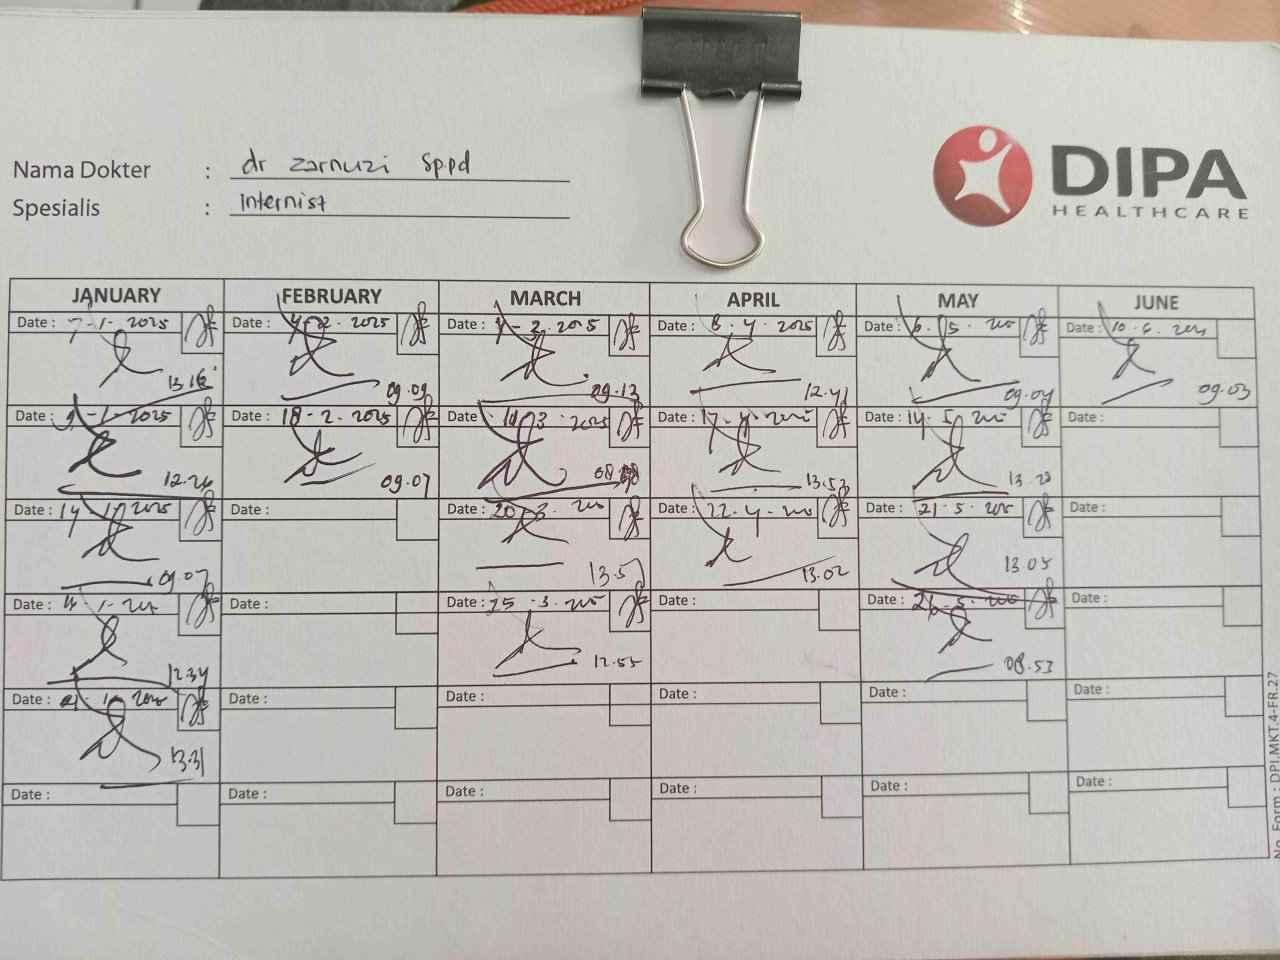 DIPA
HEALTHCARE
Nama Dokter : dr Zarnuzi Sp.pd
Spesialis : Internist
JANUARY FEBRUARY MARCH APRIL MAY JUNE
Date : 7-1-2025 Date : 4-2-2025 Date : 4-3-2025 Date : 8-4-2025 Date : 6-5-2025 Date : 10-6-2025
09.09 09.13 12.41 09.04 09.03
Date : 9-1-2025 Date : 18-2-2025 Date : 3 2025 Date : 17-4-2025 Date : 14-5-2025 Date :
12.26 09.07 08 13.53 13.20
Date : 14 2025 Date : Date : 20 3 2025 Date : 22-4-2025 Date : 21-5-2025 Date :
09.07 13.57 13.02 13.05
Date : Date : Date : 25-3-2025 Date : Date : 26-5-2025 Date :
12.34 12.55 08.53
Date : Date : Date : Date : Date : Date :
13.31
Date : Date : Date : Date : Date : Date :
No. Form : DPI.MKT.4-FR.27